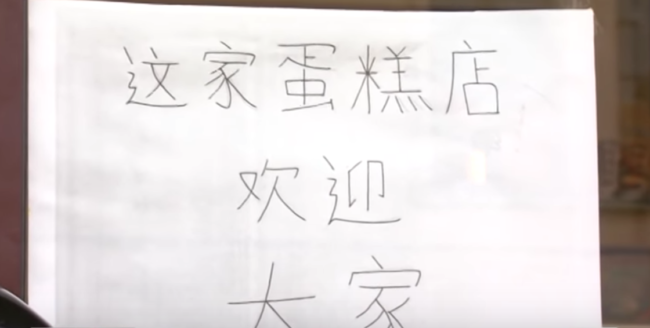 这家蛋糕店
欢迎
大家